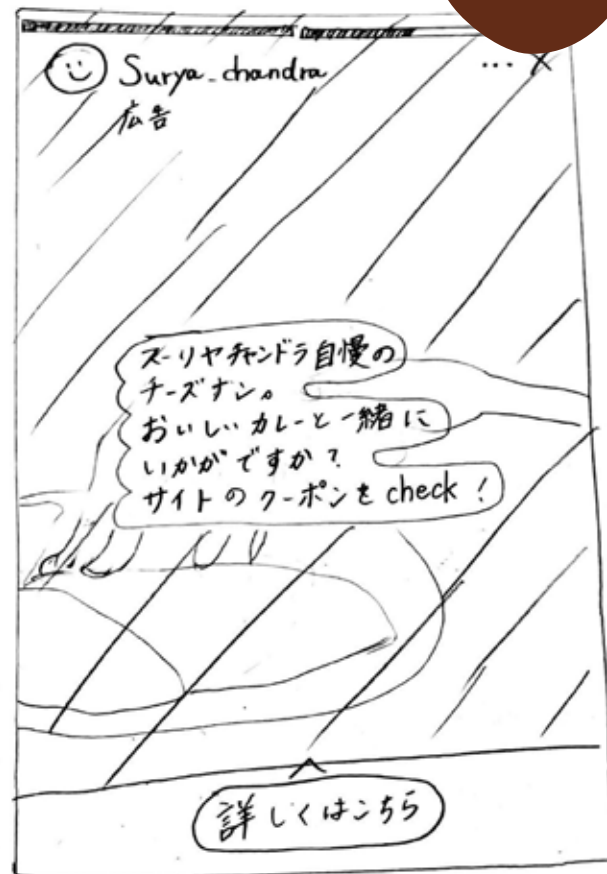 Surya_chandra
広告
スーリヤチャンドラ自慢の
チーズナン。
おいしいカレーと一緒に
いかがですか?
サイトのクーポンをcheck!
詳しくはこちら